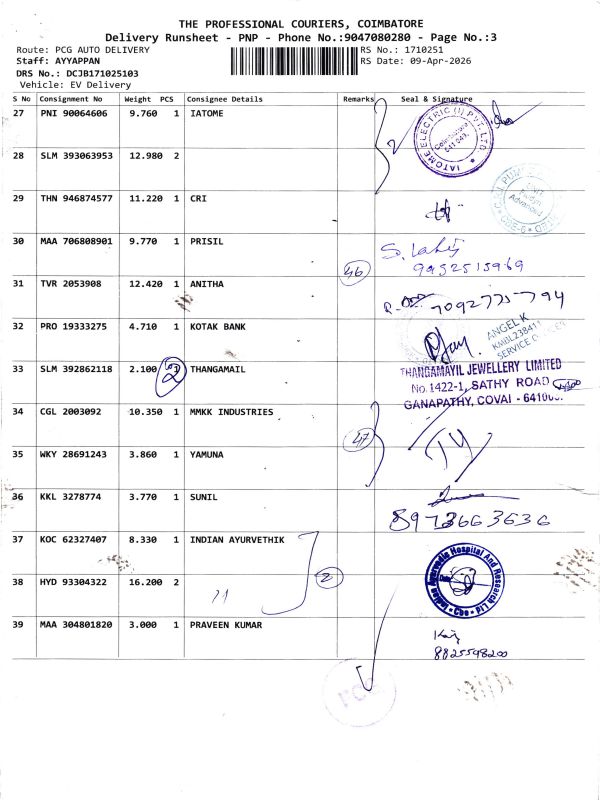 THE PROFESSIONAL COURIERS, COIMBATORE
Delivery Runsheet - PNP - Phone No.:9047080280 - Page No.:3
Route: PCG AUTO DELIVERY
RS No.: 1710251
Staff: AYYAPPAN
RS Date: 09-Apr-2026
DRS No.: DCJB171025103
Vehicle: EV Delivery
S No Consignment No Weight PCS Consignee Details Remarks Seal & Signature
27 PNI 90064606 9.760 1 IATOME
IATOME ELECTRIC (I) PVT. LTD. Coimbatore 641 049.
28 SLM 393063953 12.980 2
29 THN 946874577 11.220 1 CRI
30 MAA 706808901 9.770 1 PRISIL
46
9952515969
31 TVR 2053908 12.420 1 ANITHA
7092775794
32 PRO 19333275 4.710 1 KOTAK BANK
ANGEL K
KMBL238411
33 SLM 392862118 2.100 2 THANGAMAIL
THANGAMAYIL JEWELLERY LIMITED
No.1422-1, SATHY ROAD
GANAPATHY, COVAI - 641006.
34 CGL 2003092 10.350 1 MMKK INDUSTRIES
47
35 WKY 28691243 3.860 1 YAMUNA
36 KKL 3278774 3.770 1 SUNIL
8973663636
37 KOC 62327407 8.330 1 INDIAN AYURVETHIK
Indian Ayurvedic Hospital And Research
38 HYD 93304322 16.200 2
2
39 MAA 304801820 3.000 1 PRAVEEN KUMAR
8825598200
PCG